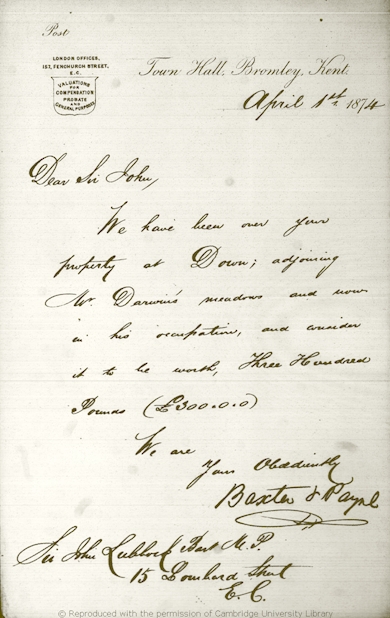 Post
LONDON OFFICES,
157, FENCHURCH STREET,
E.C.
VALUATIONS
FOR
COMPENSATION
PROBATE
AND
GENERAL PURPOSES
Town Hall, Bromley, Kent.
April 1st. 1874
Dear Sir John,
We have been over your
property at Down; adjoining
Mr. Darwin's meadows and now
in his occupation, and consider
it to be worth, Three Hundred
Pounds (£300.0.0)
We are
Yours Obediently
Baxter & Payne
Sir John Lubbock Bart M.P.
15 Lombard Street
E.C.
© Reproduced with the permission of Cambridge University Library